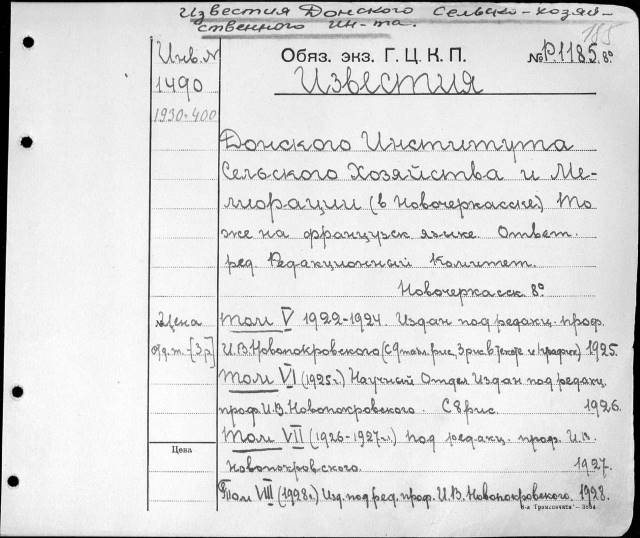 Известия Донского Сельско-хозяй-
ственного Ин-та.
185
Инв. №
1490
1930-400
Обяз. экз. Г. Ц. К. П.
№ Р.1185. 8°
Известия
Донского Института
Сельского Хозяйства и Ме-
лиорации (в Новочеркасске) То
же на французск языке Ответ.
ред. Редакционный Комитет.
Новочеркасск 8°
Цена
отд. т. - [3 р]
Том V 1922-1924. Издан под редакц. проф.
И.В. Новопокровского (с 9 табл. рис, 3 рис. в тексте и 1 график) 1925.
Том VI (1925 г.) Научный Отдел Издан под редакц.
проф. И.В. Новопокровского. С 8 рис. 1926.
Том VII (1926-1927 г.) под редакц. проф. И.В.
Новопокровского. 1927.
Цена
Том VIII (1928 г.) Изд. под ред. проф. И.В. Новопокровского. 1928.